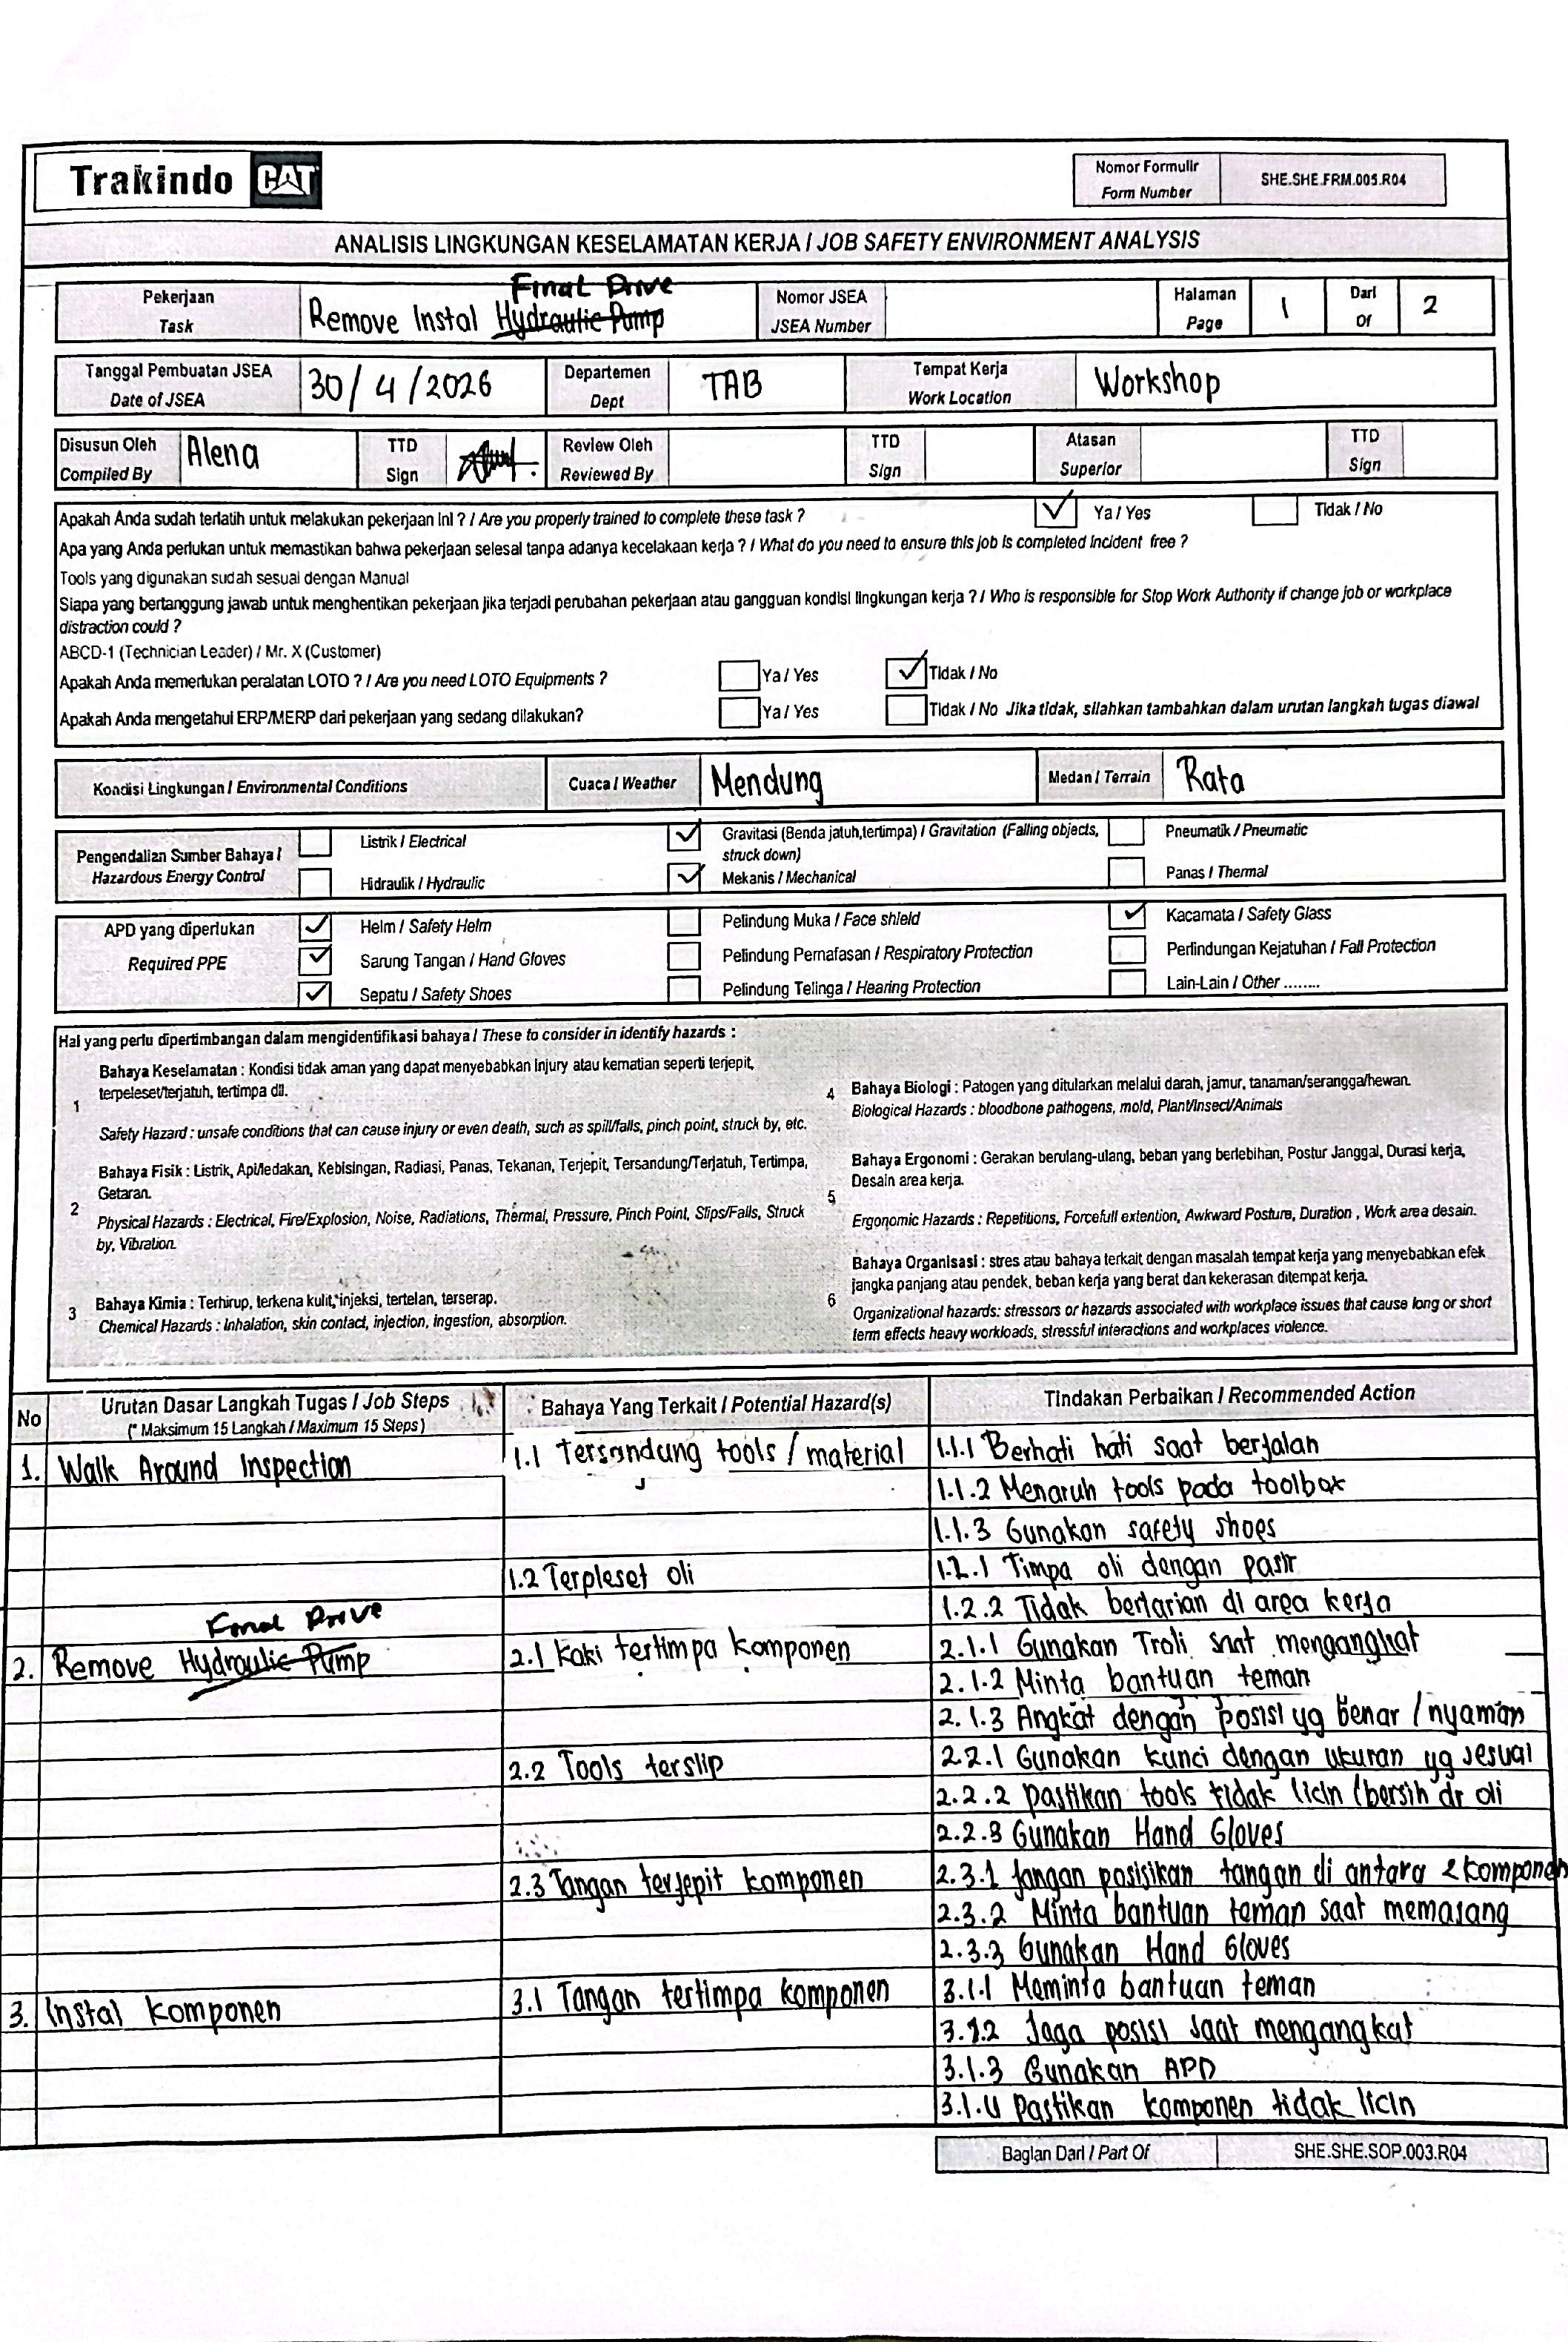 Trakindo CAT
Nomor Formulir
Form Number
SHE.SHE.FRM.005.R04
ANALISIS LINGKUNGAN KESELAMATAN KERJA / JOB SAFETY ENVIRONMENT ANALYSIS
Pekerjaan
Task
Final Drive
Remove Instal Hydraulic Pump
Nomor JSEA
JSEA Number
Halaman
Page
1
Dari
Of
2
Tanggal Pembuatan JSEA
Date of JSEA
30/4/2026
Departemen
Dept
TAB
Tempat Kerja
Work Location
Workshop
Disusun Oleh
Compiled By
Alena
TTD
Sign
Review Oleh
Reviewed By
TTD
Sign
Atasan
Superior
TTD
Sign
Apakah Anda sudah terlatih untuk melakukan pekerjaan ini ? / Are you properly trained to complete these task ?
Ya / Yes
Tidak / No
Apa yang Anda perlukan untuk memastikan bahwa pekerjaan selesai tanpa adanya kecelakaan kerja ? / What do you need to ensure this job is completed incident free ?
Tools yang digunakan sudah sesuai dengan Manual
Siapa yang bertanggung jawab untuk menghentikan pekerjaan jika terjadi perubahan pekerjaan atau gangguan kondisi lingkungan kerja ? / Who is responsible for Stop Work Authority if change job or workplace
distraction could ?
ABCD-1 (Technician Leader) / Mr. X (Customer)
Apakah Anda memerlukan peralatan LOTO ? / Are you need LOTO Equipments ?
Ya / Yes
Tidak / No
Apakah Anda mengetahui ERP/MERP dari pekerjaan yang sedang dilakukan?
Ya / Yes
Tidak / No Jika tidak, silahkan tambahkan dalam urutan langkah tugas diawal
Kondisi Lingkungan / Environmental Conditions
Cuaca / Weather
Mendung
Medan / Terrain
Rata
Pengendalian Sumber Bahaya /
Hazardous Energy Control
Listrik / Electrical
Gravitasi (Benda jatuh,tertimpa) / Gravitation (Falling objects,
struck down)
Pneumatik / Pneumatic
Hidraulik / Hydraulic
Mekanis / Mechanical
Panas / Thermal
APD yang diperlukan
Required PPE
Helm / Safety Helm
Pelindung Muka / Face shield
Kacamata / Safety Glass
Sarung Tangan / Hand Gloves
Pelindung Pernafasan / Respiratory Protection
Perlindungan Kejatuhan / Fall Protection
Sepatu / Safety Shoes
Pelindung Telinga / Hearing Protection
Lain-Lain / Other ........
Hal yang perlu dipertimbangan dalam mengidentifikasi bahaya / These to consider in identify hazards :
1
Bahaya Keselamatan : Kondisi tidak aman yang dapat menyebabkan injury atau kematian seperti terjepit,
terpeleset/terjatuh, tertimpa dll.
Safety Hazard : unsafe conditions that can cause injury or even death, such as spill/falls, pinch point, struck by, etc.
2
Bahaya Fisik : Listrik, Api/ledakan, Kebisingan, Radiasi, Panas, Tekanan, Terjepit, Tersandung/Terjatuh, Tertimpa,
Getaran.
Physical Hazards : Electrical, Fire/Explosion, Noise, Radiations, Thermal, Pressure, Pinch Point, Slips/Falls, Struck
by, Vibration.
3
Bahaya Kimia : Terhirup, terkena kulit, injeksi, tertelan, terserap.
Chemical Hazards : Inhalation, skin contact, injection, ingestion, absorption.
4
Bahaya Biologi : Patogen yang ditularkan melalui darah, jamur, tanaman/serangga/hewan.
Biological Hazards : bloodbone pathogens, mold, Plant/Insect/Animals
5
Bahaya Ergonomi : Gerakan berulang-ulang, beban yang berlebihan, Postur Janggal, Durasi kerja,
Desain area kerja.
Ergonomic Hazards : Repetitions, Forcefull extention, Awkward Posture, Duration , Work area desain.
6
Bahaya Organisasi : stres atau bahaya terkait dengan masalah tempat kerja yang menyebabkan efek
jangka panjang atau pendek, beban kerja yang berat dan kekerasan ditempat kerja.
Organizational hazards: stressors or hazards associated with workplace issues that cause long or short
term effects heavy workloads, stressful interactions and workplaces violence.
No
Urutan Dasar Langkah Tugas / Job Steps
(* Maksimum 15 Langkah / Maximum 15 Steps)
Bahaya Yang Terkait / Potential Hazard(s)
Tindakan Perbaikan / Recommended Action
1. Walk Around Inspection
1.1 Tersandung tools / material
1.1.1 Berhati hati saat berjalan
1.1.2 Menaruh tools pada toolbox
1.1.3 Gunakan safety shoes
1.2 Terpleset oli
1.2.1 Timpa oli dengan pasir
1.2.2 Tidak berlarian di area kerja
Final Drive
2. Remove Hydraulic Pump
2.1 Kaki tertimpa komponen
2.1.1 Gunakan Troli saat mengangkat
2.1.2 Minta bantuan teman
2.1.3 Angkat dengan posisi yg benar / nyaman
2.2 Tools terslip
2.2.1 Gunakan kunci dengan ukuran yg sesuai
2.2.2 pastikan tools tidak licin (bersih dr oli
2.2.3 Gunakan Hand Gloves
2.3 Tangan terjepit komponen
2.3.1 Jangan posisikan tangan di antara 2 komponen
2.3.2 Minta bantuan teman saat memasang
2.3.3 Gunakan Hand Gloves
3. Instal komponen
3.1 Tangan tertimpa komponen
3.1.1 Meminta bantuan teman
3.1.2 Jaga posisi saat mengangkat
3.1.3 Gunakan APD
3.1.4 Pastikan komponen tidak licin
Bagian Dari / Part Of
SHE.SHE.SOP.003.R04